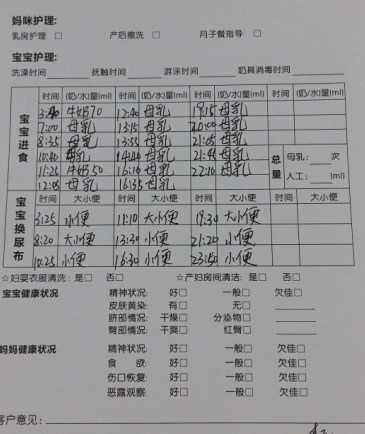 妈咪护理:
乳房护理 □ 产后擦洗 □ 月子餐指导 □
宝宝护理:
洗澡时间 抚触时间 游泳时间 奶具消毒时间
宝宝进食 时间 (奶/水)量(ml) 时间 (奶/水)量(ml) 时间 (奶/水)量(ml) 时间 (奶/水)量(ml)
3:40 牛奶70 12:40 母乳 19:15 母乳
7:00 母乳 13:15 母乳 20:00 母乳
8:35 母乳 13:55 母乳 21:05 母乳
10:40 母乳 14:40 母乳 21:45 母乳 总量 母乳: 次
11:25 牛奶50 16:10 母乳 22:10 母乳 人工: (ml)
12:05 母乳 16:35 母乳
宝宝换尿布 时间 大小便 时间 大小便 时间 大小便 时间 大小便
3:25 小便 11:10 大小便 19:30 大小便
8:20 大小便 13:30 小便 21:20 小便
10:25 小便 16:30 小便 23:50 小便
☆妇婴衣服清洗: 是□ 否□ ☆产妇房间清洁: 是□ 否□
宝宝健康状况 精神状况: 好□ 一般□ 欠佳□
皮肤黄染: 有□ 无□
脐部情况: 干燥□ 分泌物□
臀部情况: 干爽□ 红臀□
妈妈健康状况 精神状况: 好□ 一般□ 欠佳□
食 欲: 好□ 一般□ 欠佳□
伤口恢复: 好□ 一般□ 欠佳□
恶露观察: 好□ 一般□ 欠佳□
客户意见: